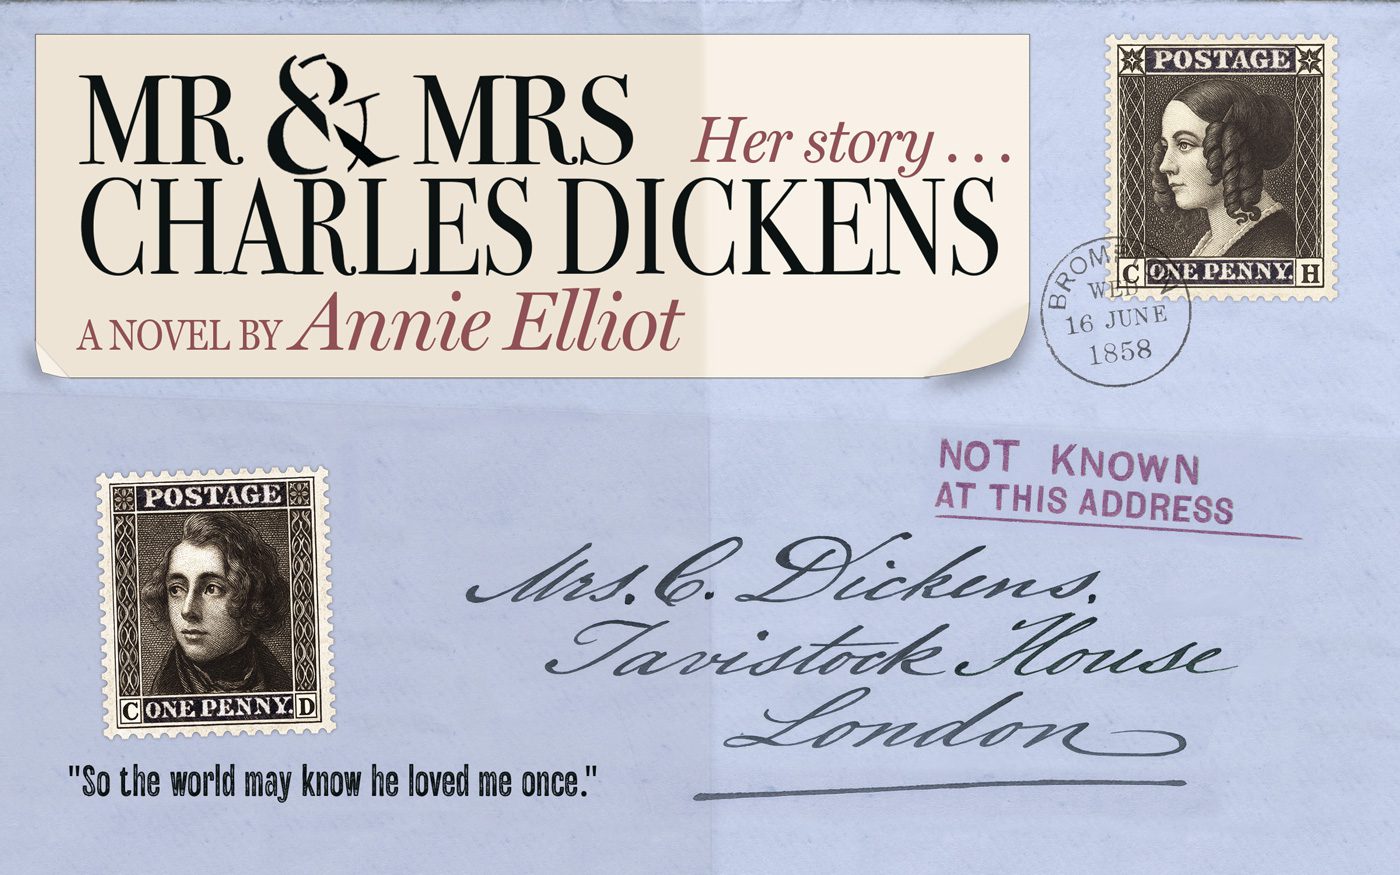 MR & MRS
Her story . . .
CHARLES DICKENS
A NOVEL BY Annie Elliot
POSTAGE
C ONE PENNY. H
WED
16 JUNE
1858
NOT KNOWN
AT THIS ADDRESS
POSTAGE
C ONE PENNY. D
Mrs. C. Dickens.
Tavistock House
London
"So the world may know he loved me once."